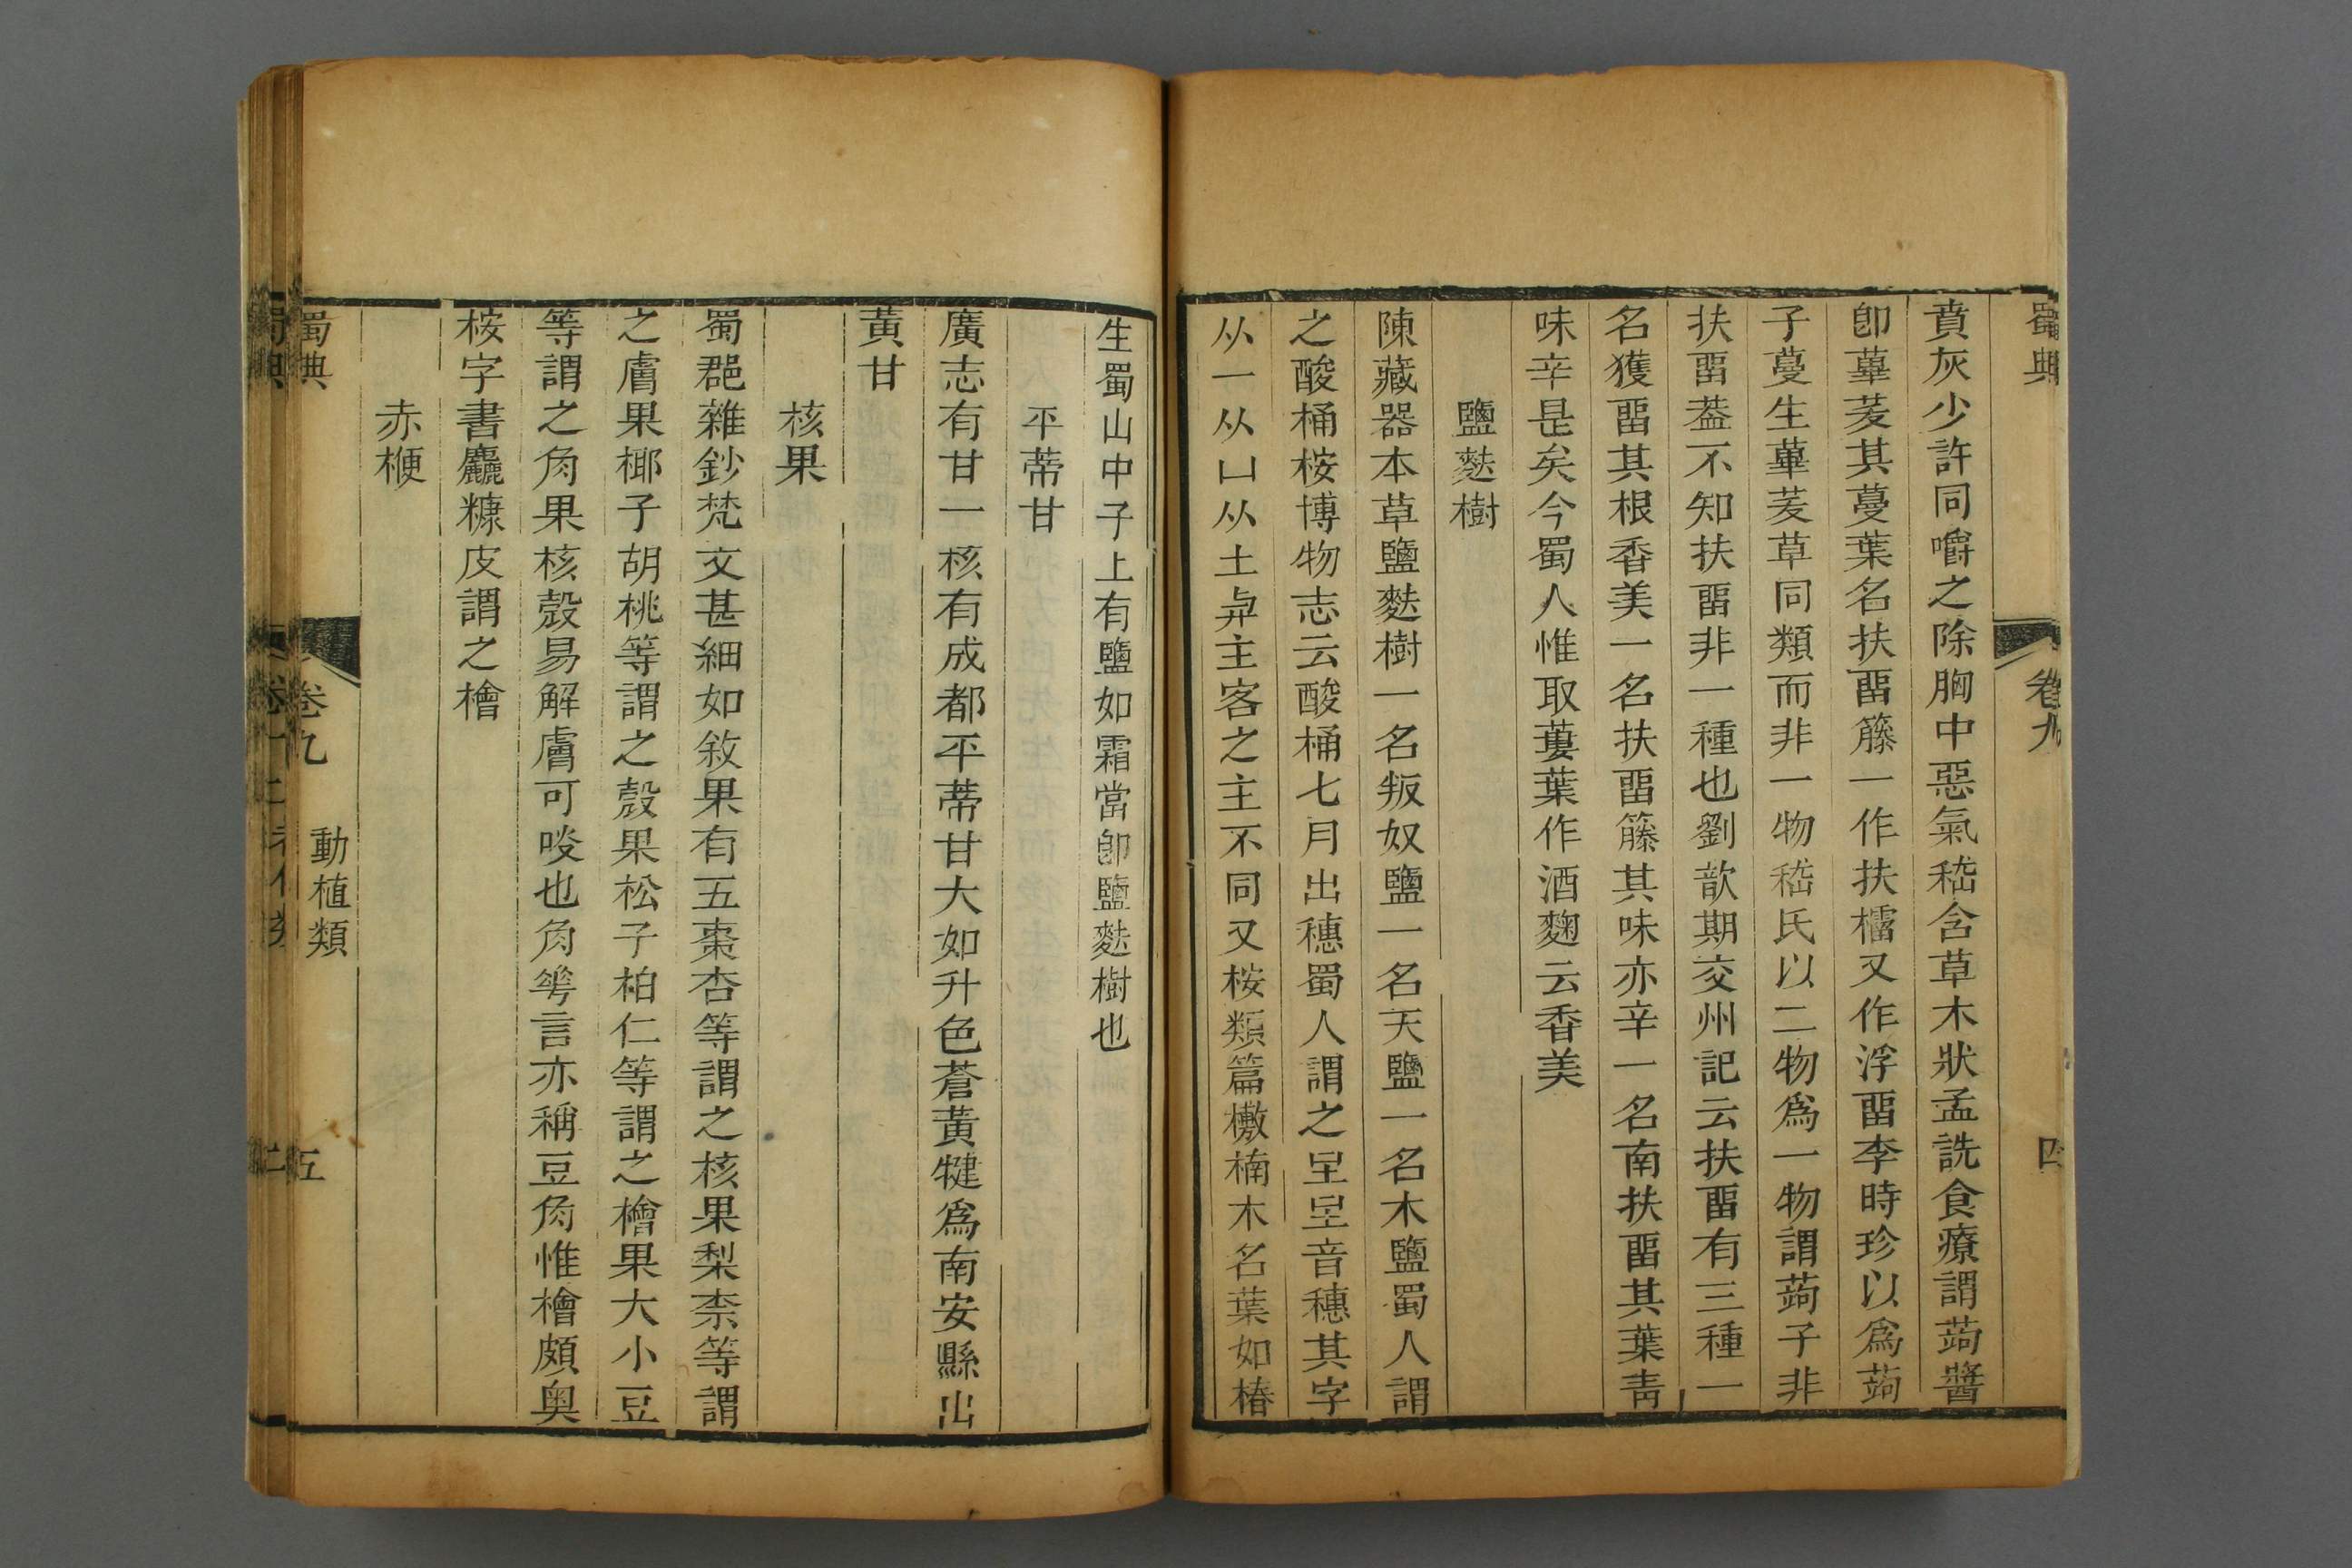 蜀典 卷九 四
賁灰少許同嚼之除胸中惡氣嵇含草木狀孟詵食療謂蒟醬
卽蓽茇其蔓葉名扶畱籐一作扶櫺又作浮畱李時珍以爲蒟
子蔓生蓽茇草同類而非一物嵇氏以二物爲一物謂蒟子非
扶畱葢不知扶畱非一種也劉歆期交州記云扶畱有三種一
名獲畱其根香美一名扶畱籐其味亦辛一名南扶畱其葉靑
味辛是矣今蜀人惟取蔞葉作酒麴云香美
鹽麩樹
陳藏器本草鹽麩樹一名叛奴鹽一名天鹽一名木鹽蜀人謂
之酸桶桉博物志云酸桶七月出穗蜀人謂之主音穗其字
从一从凵从土與主客之主不同又桉類篇橵楠木名葉如椿
生蜀山中子上有鹽如霜當卽鹽麩樹也
平蒂甘
廣志有甘一核有成都平蒂甘大如升色蒼黃犍爲南安縣出
黃甘
核果
蜀郡雜鈔梵文甚細如敘果有五棗杏等謂之核果梨柰等謂
之膚果椰子胡桃等謂之殼果松子柏仁等謂之檜果大小豆
等謂之角果核殼易解膚可啖也角華言亦稱豆角惟檜頗奥
桉字書麤糠皮謂之檜
赤楩
蜀典 卷九 動植類 五